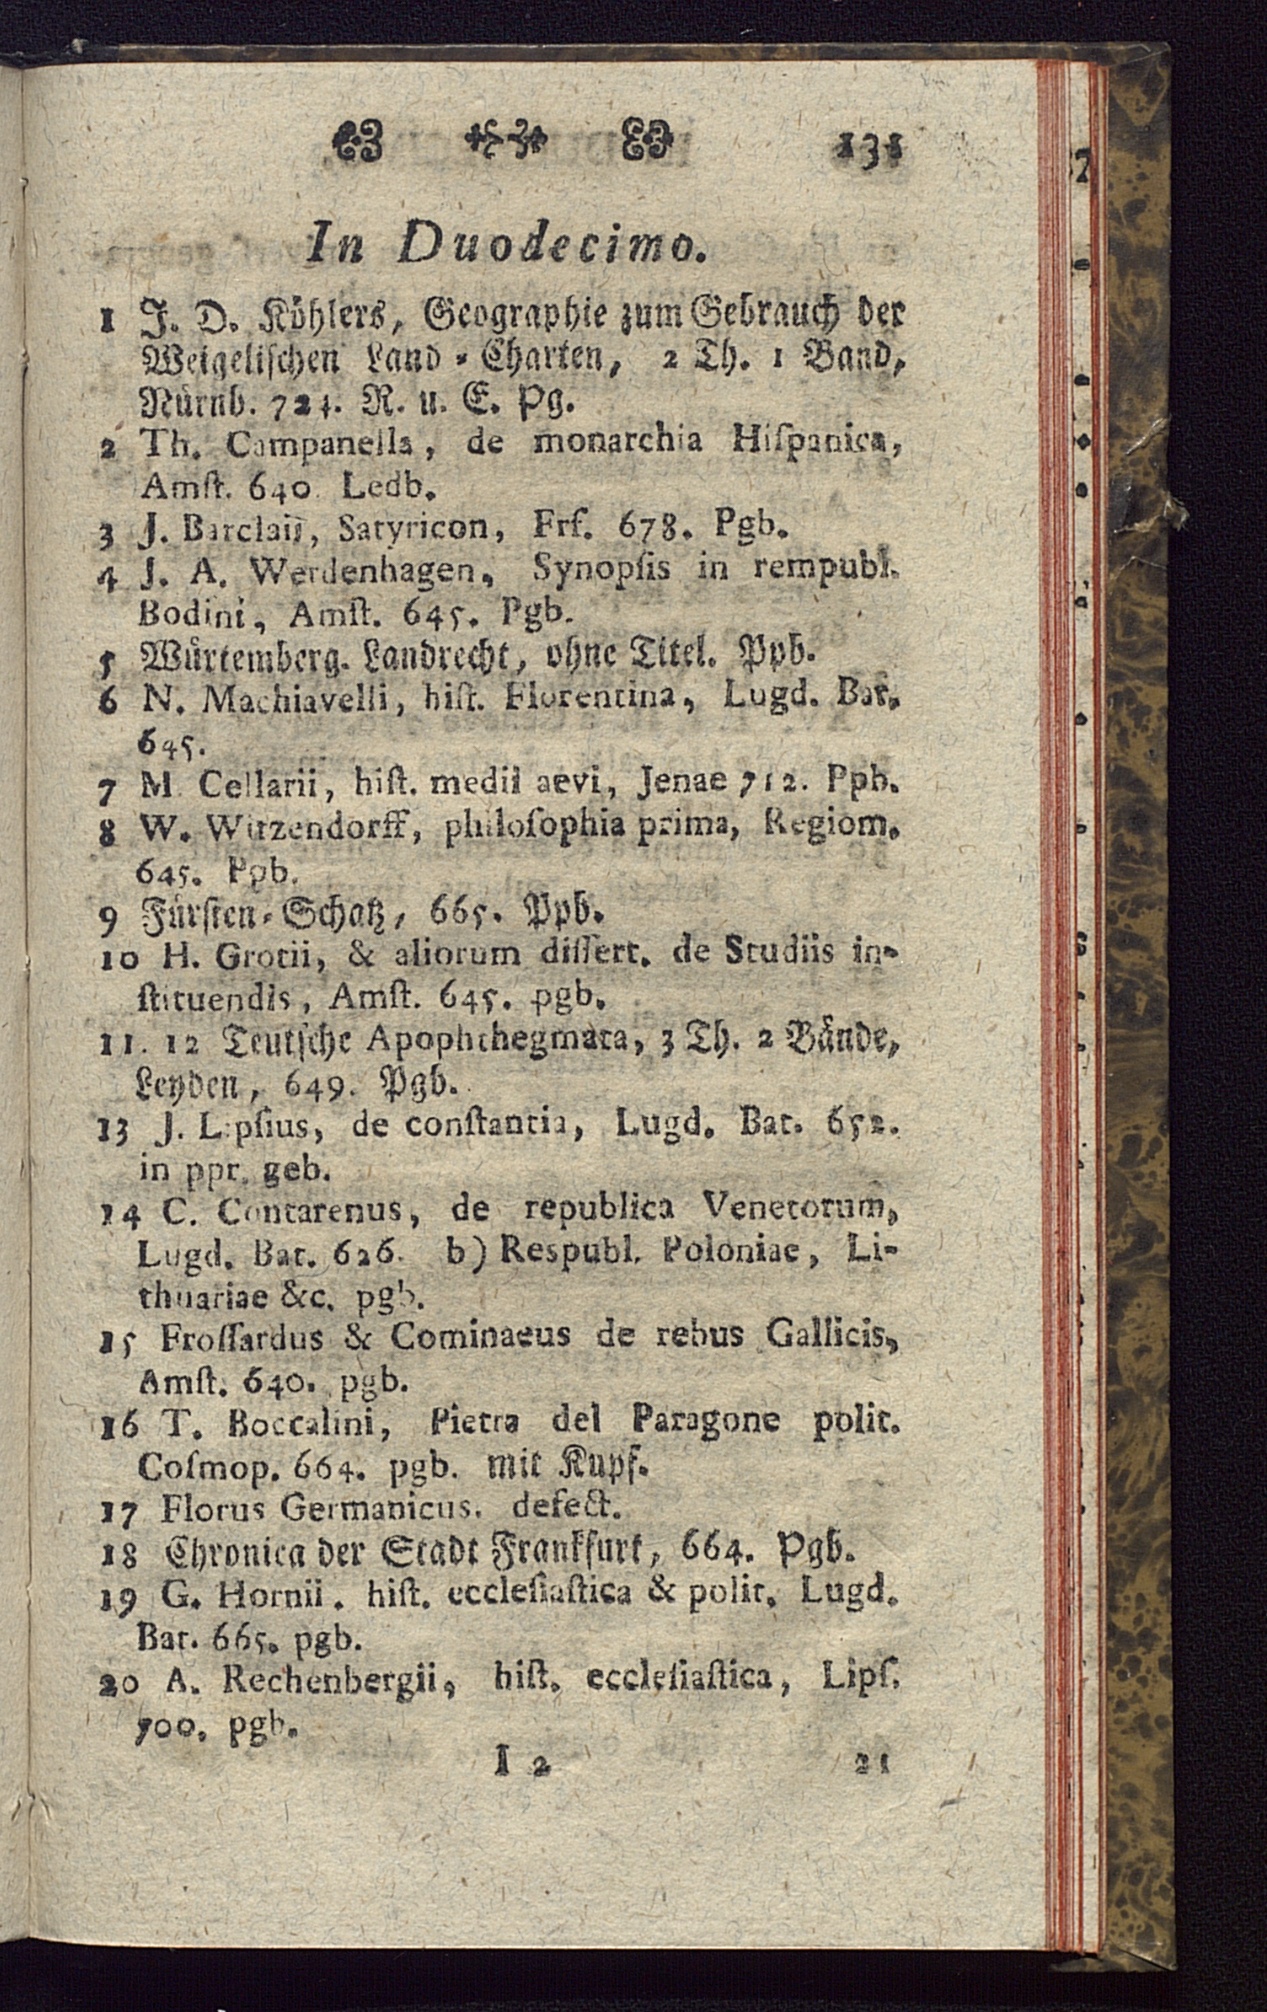 131
In Duodecimo.
1 J. D. Köhlers, Geographie zum Gebrauch der
Weigelischen Land-Charten, 2 Th. 1 Band,
Nürnb. 724. R. u. E. Pg.
2 Th. Campanella, de monarchia Hiſpanica,
Amſt. 640. Ledb.
3 J. Barclaii, Satyricon, Frf. 678. Pgb.
4 J. A. Werdenhagen, Synopſis in rempubl.
Bodini, Amſt. 645. Pgb.
5 Würtemberg. Landrecht, ohne Titel. Ppb.
6 N. Machiavelli, hiſt. Florentina, Lugd. Bat.
645.
7 M. Cellarii, hiſt. medii aevi, Jenae 712. Ppb.
8 W. Witzendorff, philoſophia prima, Regiom.
645. Ppb.
9 Fürsten-Schatz, 665. Ppb.
10 H. Grotii, & aliorum diſſert. de Studiis in-
ſtituendis, Amſt. 645. pgb.
11. 12 Teutsche Apophthegmata, 3 Th. 2 Bände,
Leyden, 649. Pgb.
13 J. Lipſius, de conſtantia, Lugd. Bat. 652.
in ppr. geb.
14 C. Contarenus, de republica Venetorum,
Lugd. Bat. 626. b) Respubl. Poloniae, Li-
thuariae &c. pgb.
15 Froſſardus & Cominaeus de rebus Gallicis,
Amſt. 640. pgb.
16 T. Boccalini, Pietra del Paragone polit.
Coſmop. 664. pgb. mit Kupf.
17 Florus Germanicus. defect.
18 Chronica der Stadt Frankfurt, 664. Pgb.
19 G. Hornii. hiſt. eccleſiaſtica & polit. Lugd.
Bat. 665. pgb.
20 A. Rechenbergii, hiſt. eccleſiaſtica, Lipſ.
700. pgb.
I 2 21